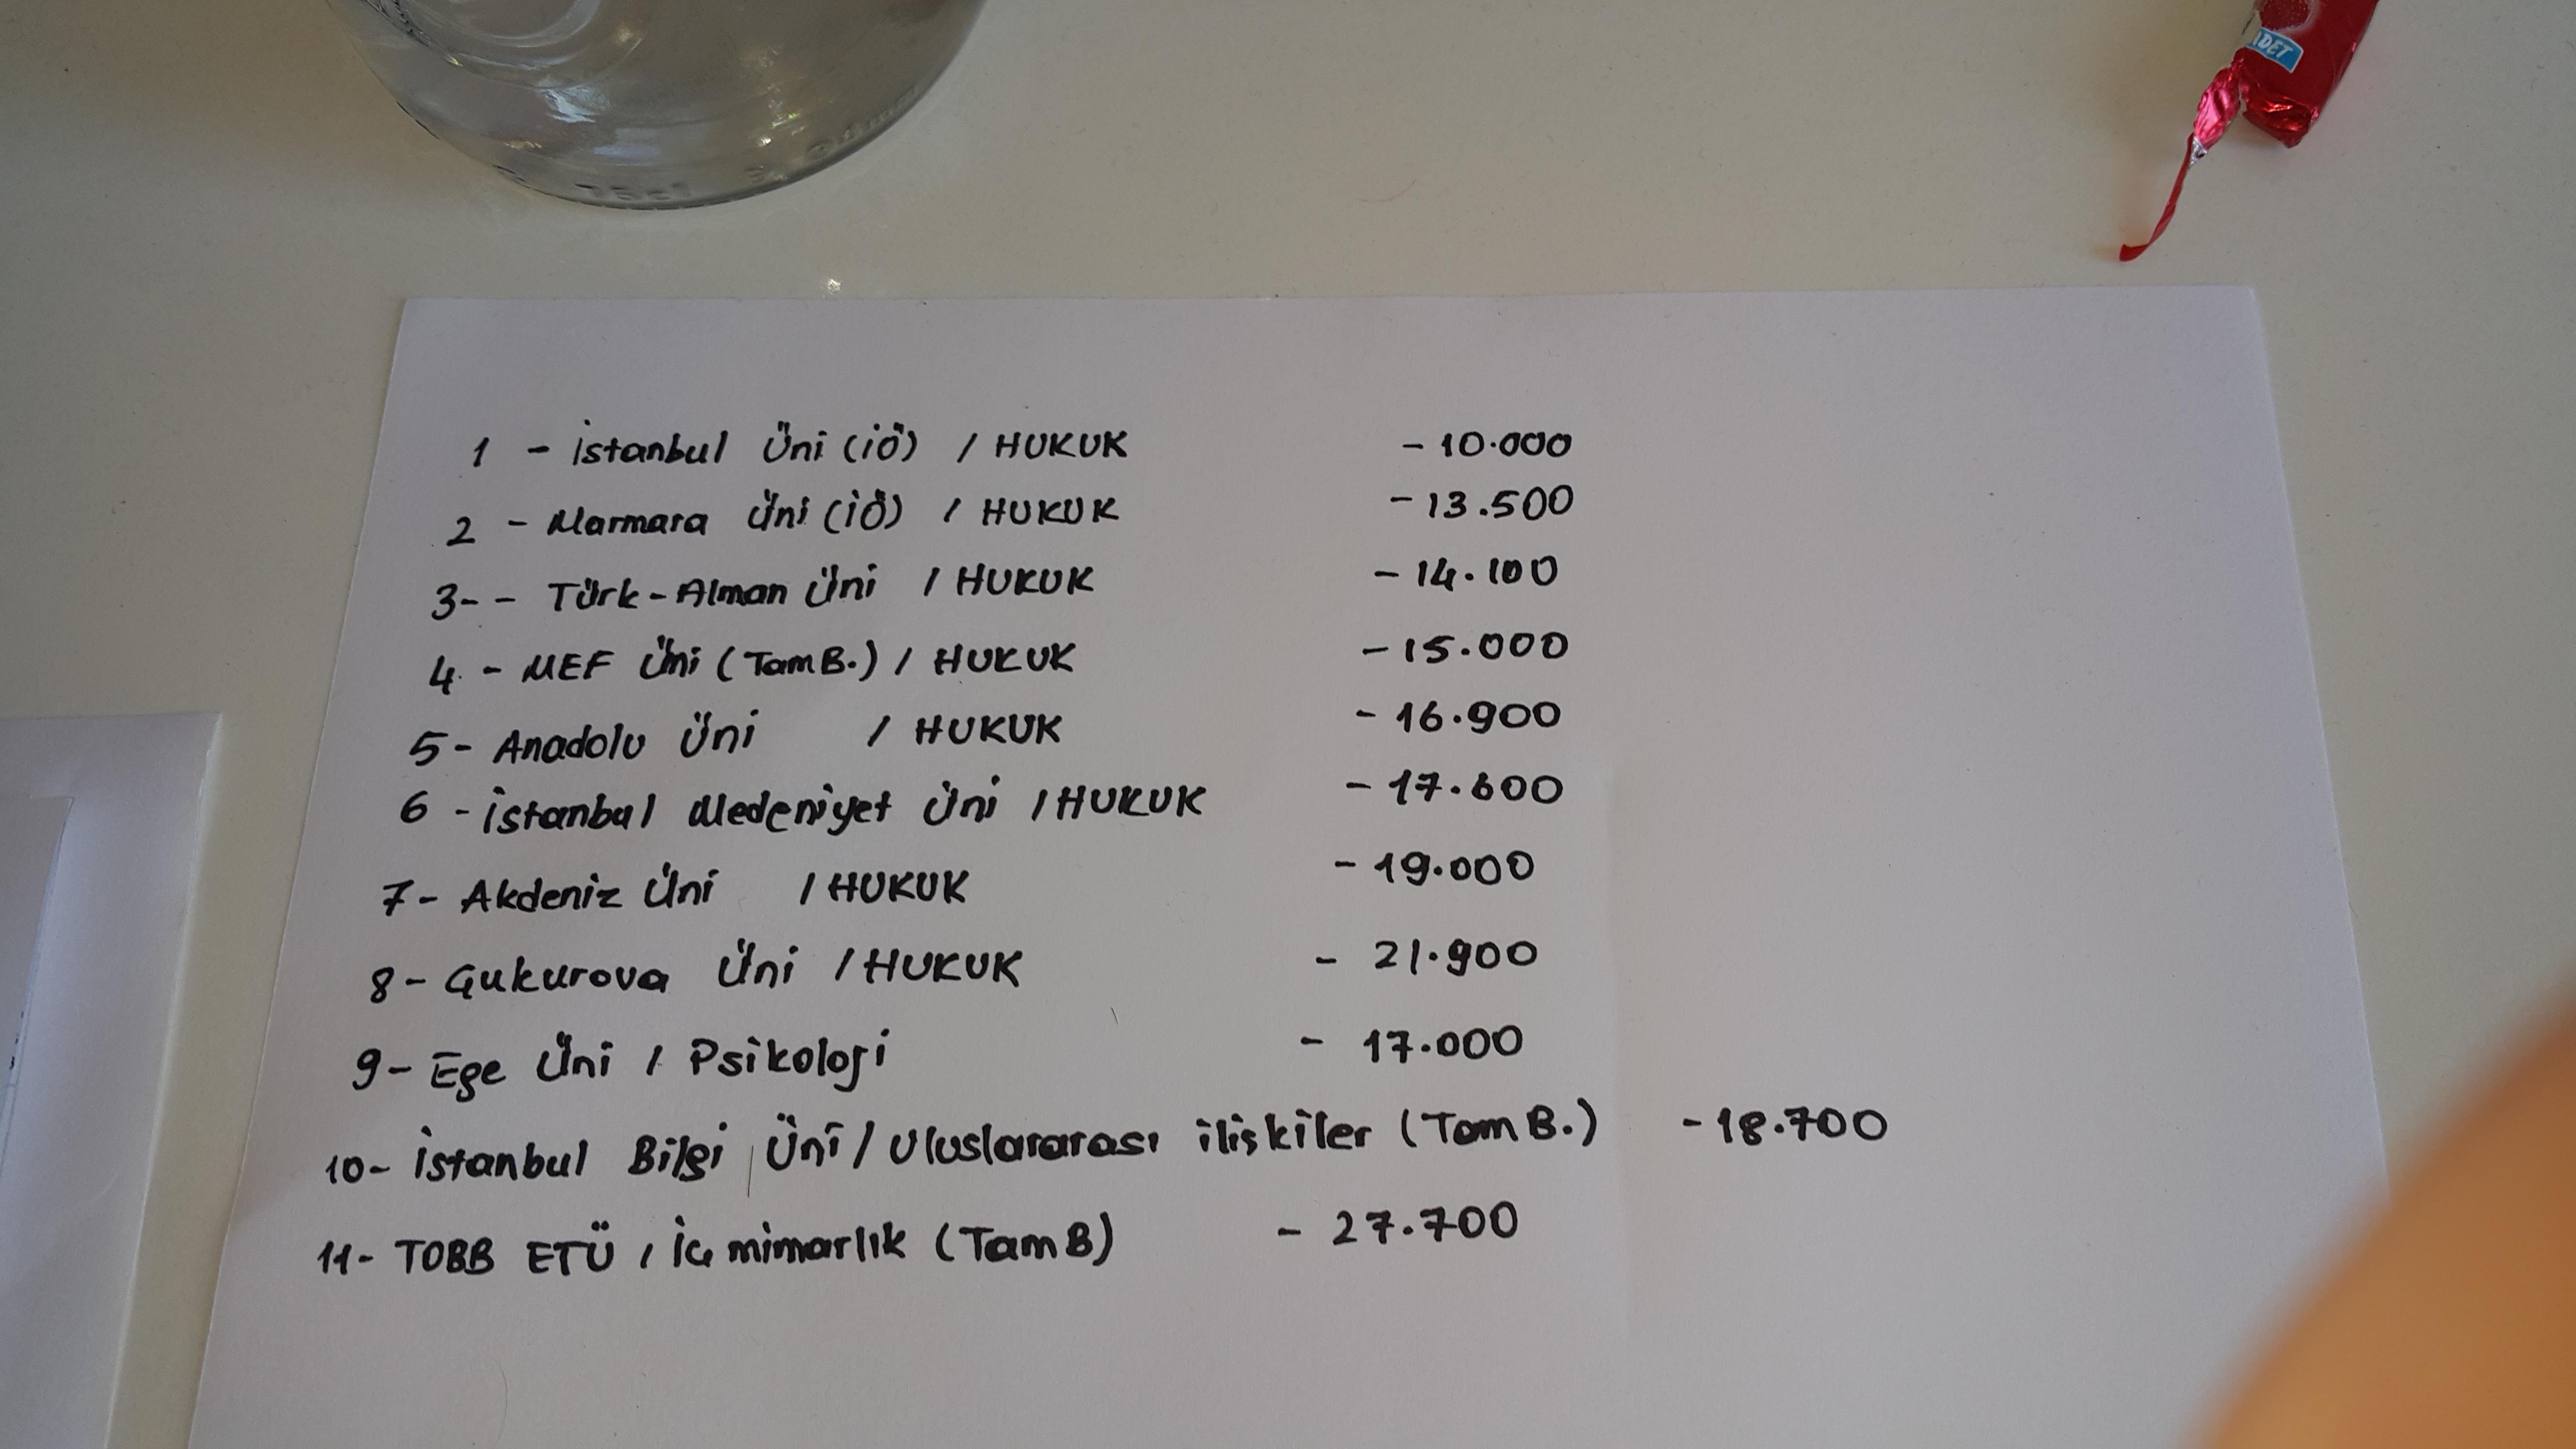 ADET
75cl
1 - İstanbul Üni (İÖ) / HUKUK - 10.000
2 - Marmara Üni (İÖ) / HUKUK - 13.500
3-- Türk-Alman Üni / HUKUK - 14.100
4 - MEF Üni (Tam B.) / HUKUK - 15.000
5- Anadolu Üni / HUKUK - 16.900
6 - İstanbul Medeniyet Üni / HUKUK - 17.600
7- Akdeniz Üni / HUKUK - 19.000
8- Çukurova Üni / HUKUK - 21.900
9- Ege Üni / Psikoloji - 17.000
10- İstanbul Bilgi Üni / Uluslararası ilişkiler (Tam B.) - 18.700
11- TOBB ETÜ / İç mimarlık (Tam B) - 27.700